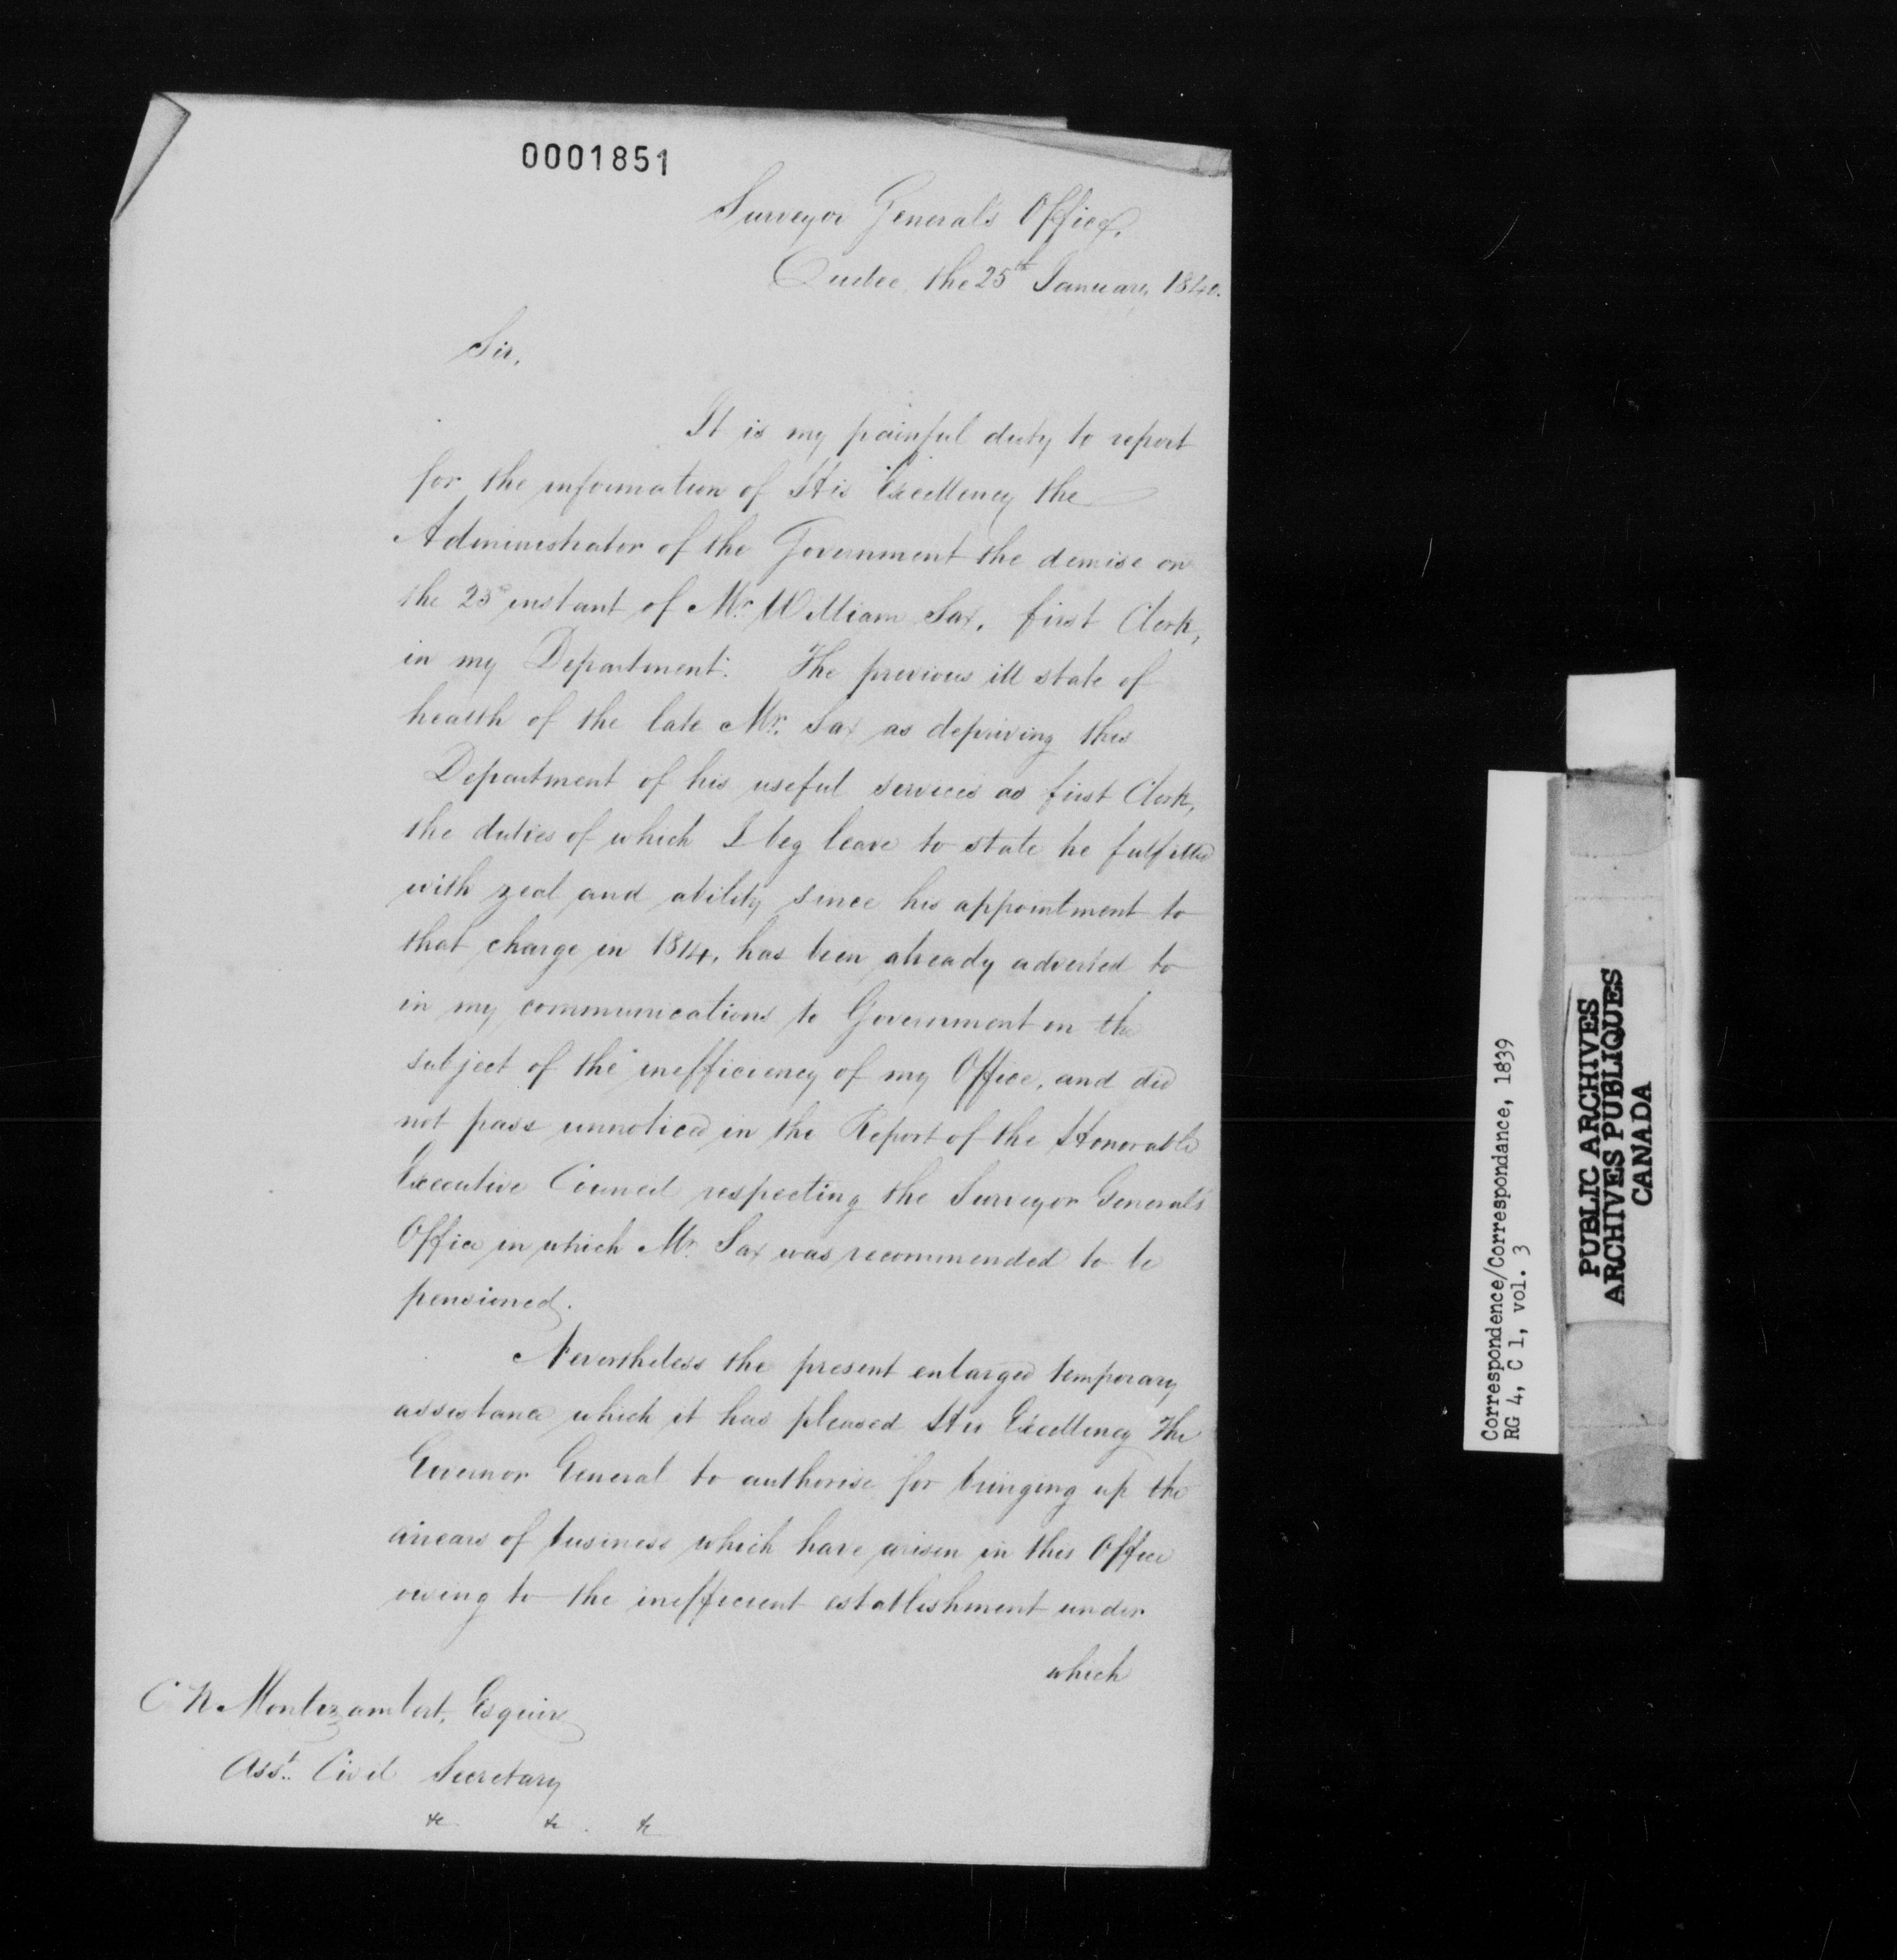 0001851
Surveyor General's Office,
Quebec, the 25th January, 1840.
Sir,
It is my painful duty to report
for the information of His Excellency the
Administrator of the Government the demise on
the 23d instant of Mr. William Sax, first Clerk,
in my Department. The previous ill state of
health of the late Mr. Sax as depriving this
Department of his useful services as first Clerk,
the duties of which I beg leave to state he fulfilled
with zeal and ability since his appointment to
that charge in 1814, has been already adverted to
in my communications to Government on the
subject of the inefficiency of my Office, and did
not pass unnoticed in the Report of the Honorable
Executive Council respecting the Surveyor General's
Office in which Mr. Sax was recommended to be
pensioned.
Nevertheless the present enlarged temporary
assistance which it has pleased His Excellency The
Governor General to authorise for bringing up the
arrears of business which have arisen in this Office
owing to the inefficient establishment under
which
C N Montizambert, Esquire
Asst. Civil Secretary
&c &c. &c
Correspondence/Correspondance, 1839
RG 4, C 1, vol. 3
PUBLIC ARCHIVES
ARCHIVES PUBLIQUES
CANADA